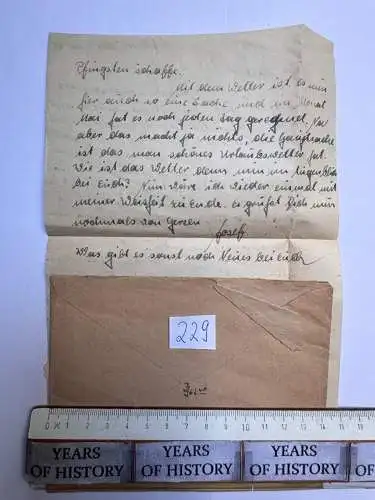 Pfingsten schaffe.
Mit dem Wetter ist es nun
hier auch so eine Sache, noch im Monat
Mai hat es noch jeden Tag geregnet. Na
aber das macht ja nichts, die Hauptsache
ist das man schönes Urlaubswetter hat.
Wie ist das Wetter denn nun im Augenblick
bei Euch? Nun wäre ich wieder einmal mit
meiner Weisheit zu Ende. Es grüßt Dich nun
nochmals von Herzen
Josef
Was gibt es sonst noch Neues bei Euch
229
YEARS OF HISTORY
YEARS OF HISTORY
YEARS OF HISTORY